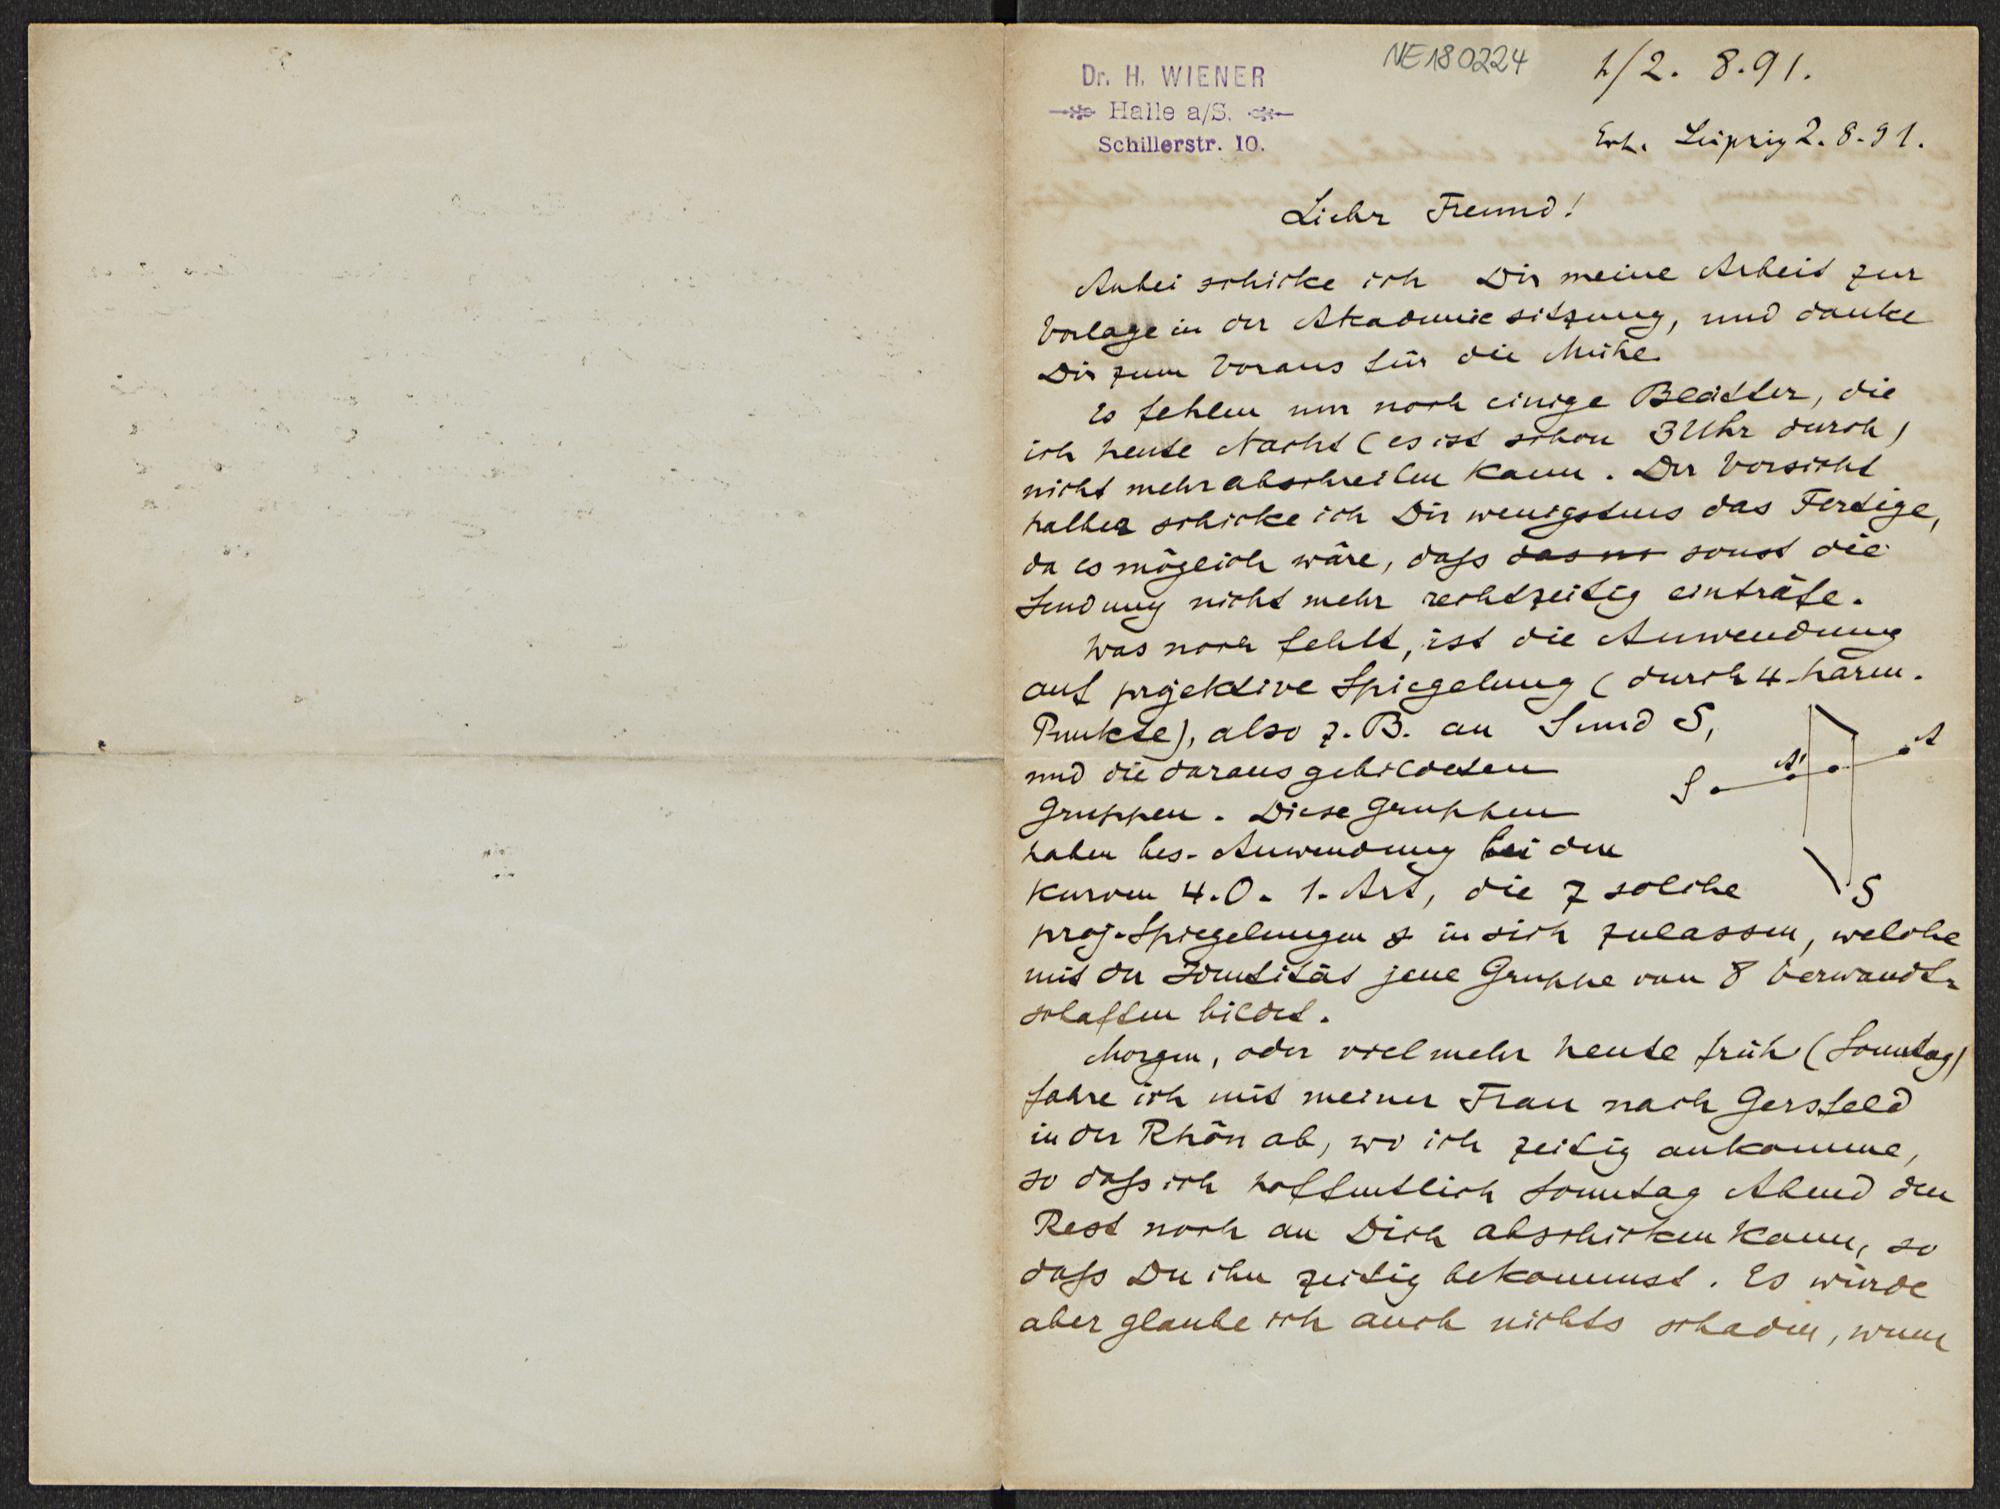 Dr. H. WIENER
Halle a/S.
Schillerstr. 10.
NE180224
1/2. 8.91.
Erh. Leipzig 2.8.91.
Lieber Freund!
Anbei schicke ich Dir meine Arbeit zur
Vorlage in der Akademiesitzung, und danke
Dir zum Voraus für die Mühe.
Es fehlen nur noch einige Blätter, die
ich heute Nacht (es ist schon 3 Uhr durch)
nicht mehr abschreiben kann. Der Vorsicht
halber schicke ich Dir wenigstens das Fertige,
da es möglich wäre, dass sonst die
Sendung nicht mehr rechtzeitig einträfe.
Was noch fehlt, ist die Anwendung
auf projektive Spiegelung (durch 4 harm.
Punkte), also z. B. an S und S,
und die daraus gebildeten
Gruppen. Diese Gruppen
haben bes. Anwendung bei den
Kurven 4. O. 1. Art, die 7 solche
proj. Spiegelungen in sich zulassen, welche
mit der Identität jene Gruppe von 8 Verwandt-
schaften bildet.
S A' A
S
Morgen, oder vielmehr heute früh (Sonntag)
fahre ich mit meiner Frau nach Gersfeld
in der Rhön ab, wo ich zeitig ankomme,
so dass ich hoffentlich Sonntag Abend den
Rest noch an Dich abschicken kann, so
dass Du ihn zeitig bekommst. Es würde
aber glaube ich auch nichts schaden, wenn